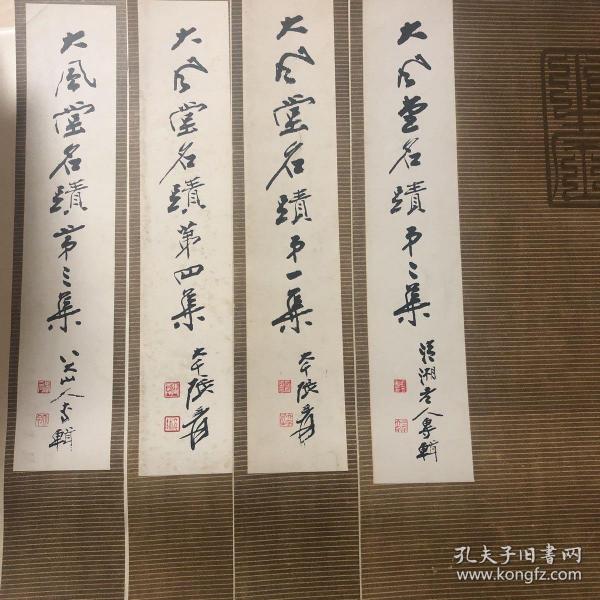 大風堂名蹟第三集
八大山人专輯
大风堂名蹟第四集
大千張爰
大风堂名蹟第一集
大千張爰
大风堂名蹟第二集
清湘老人專輯
孔夫子旧书网
www.kongfz.com